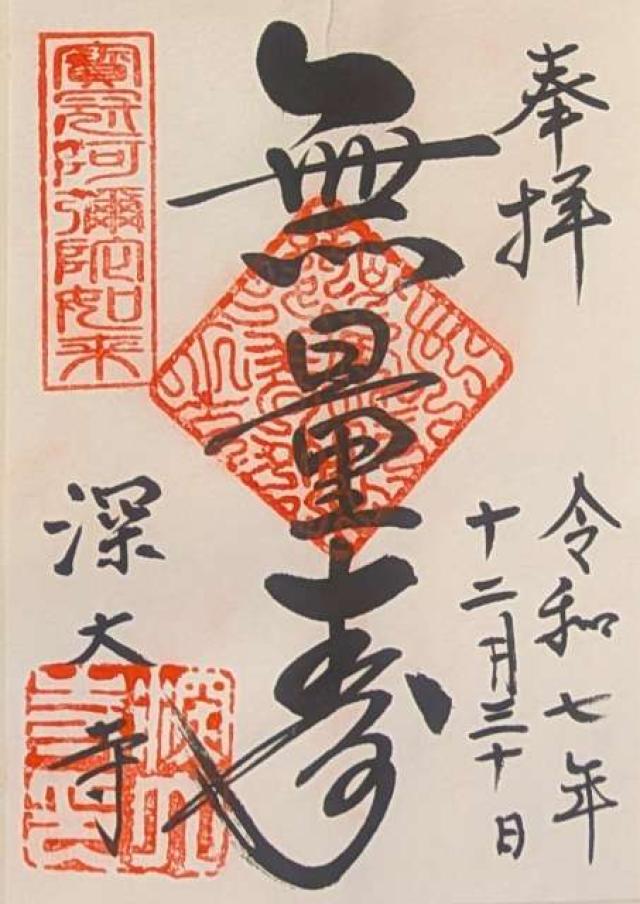 奉拝
令和七年
十二月三十日
無量寿
寶冠阿彌陀如来
深大寺